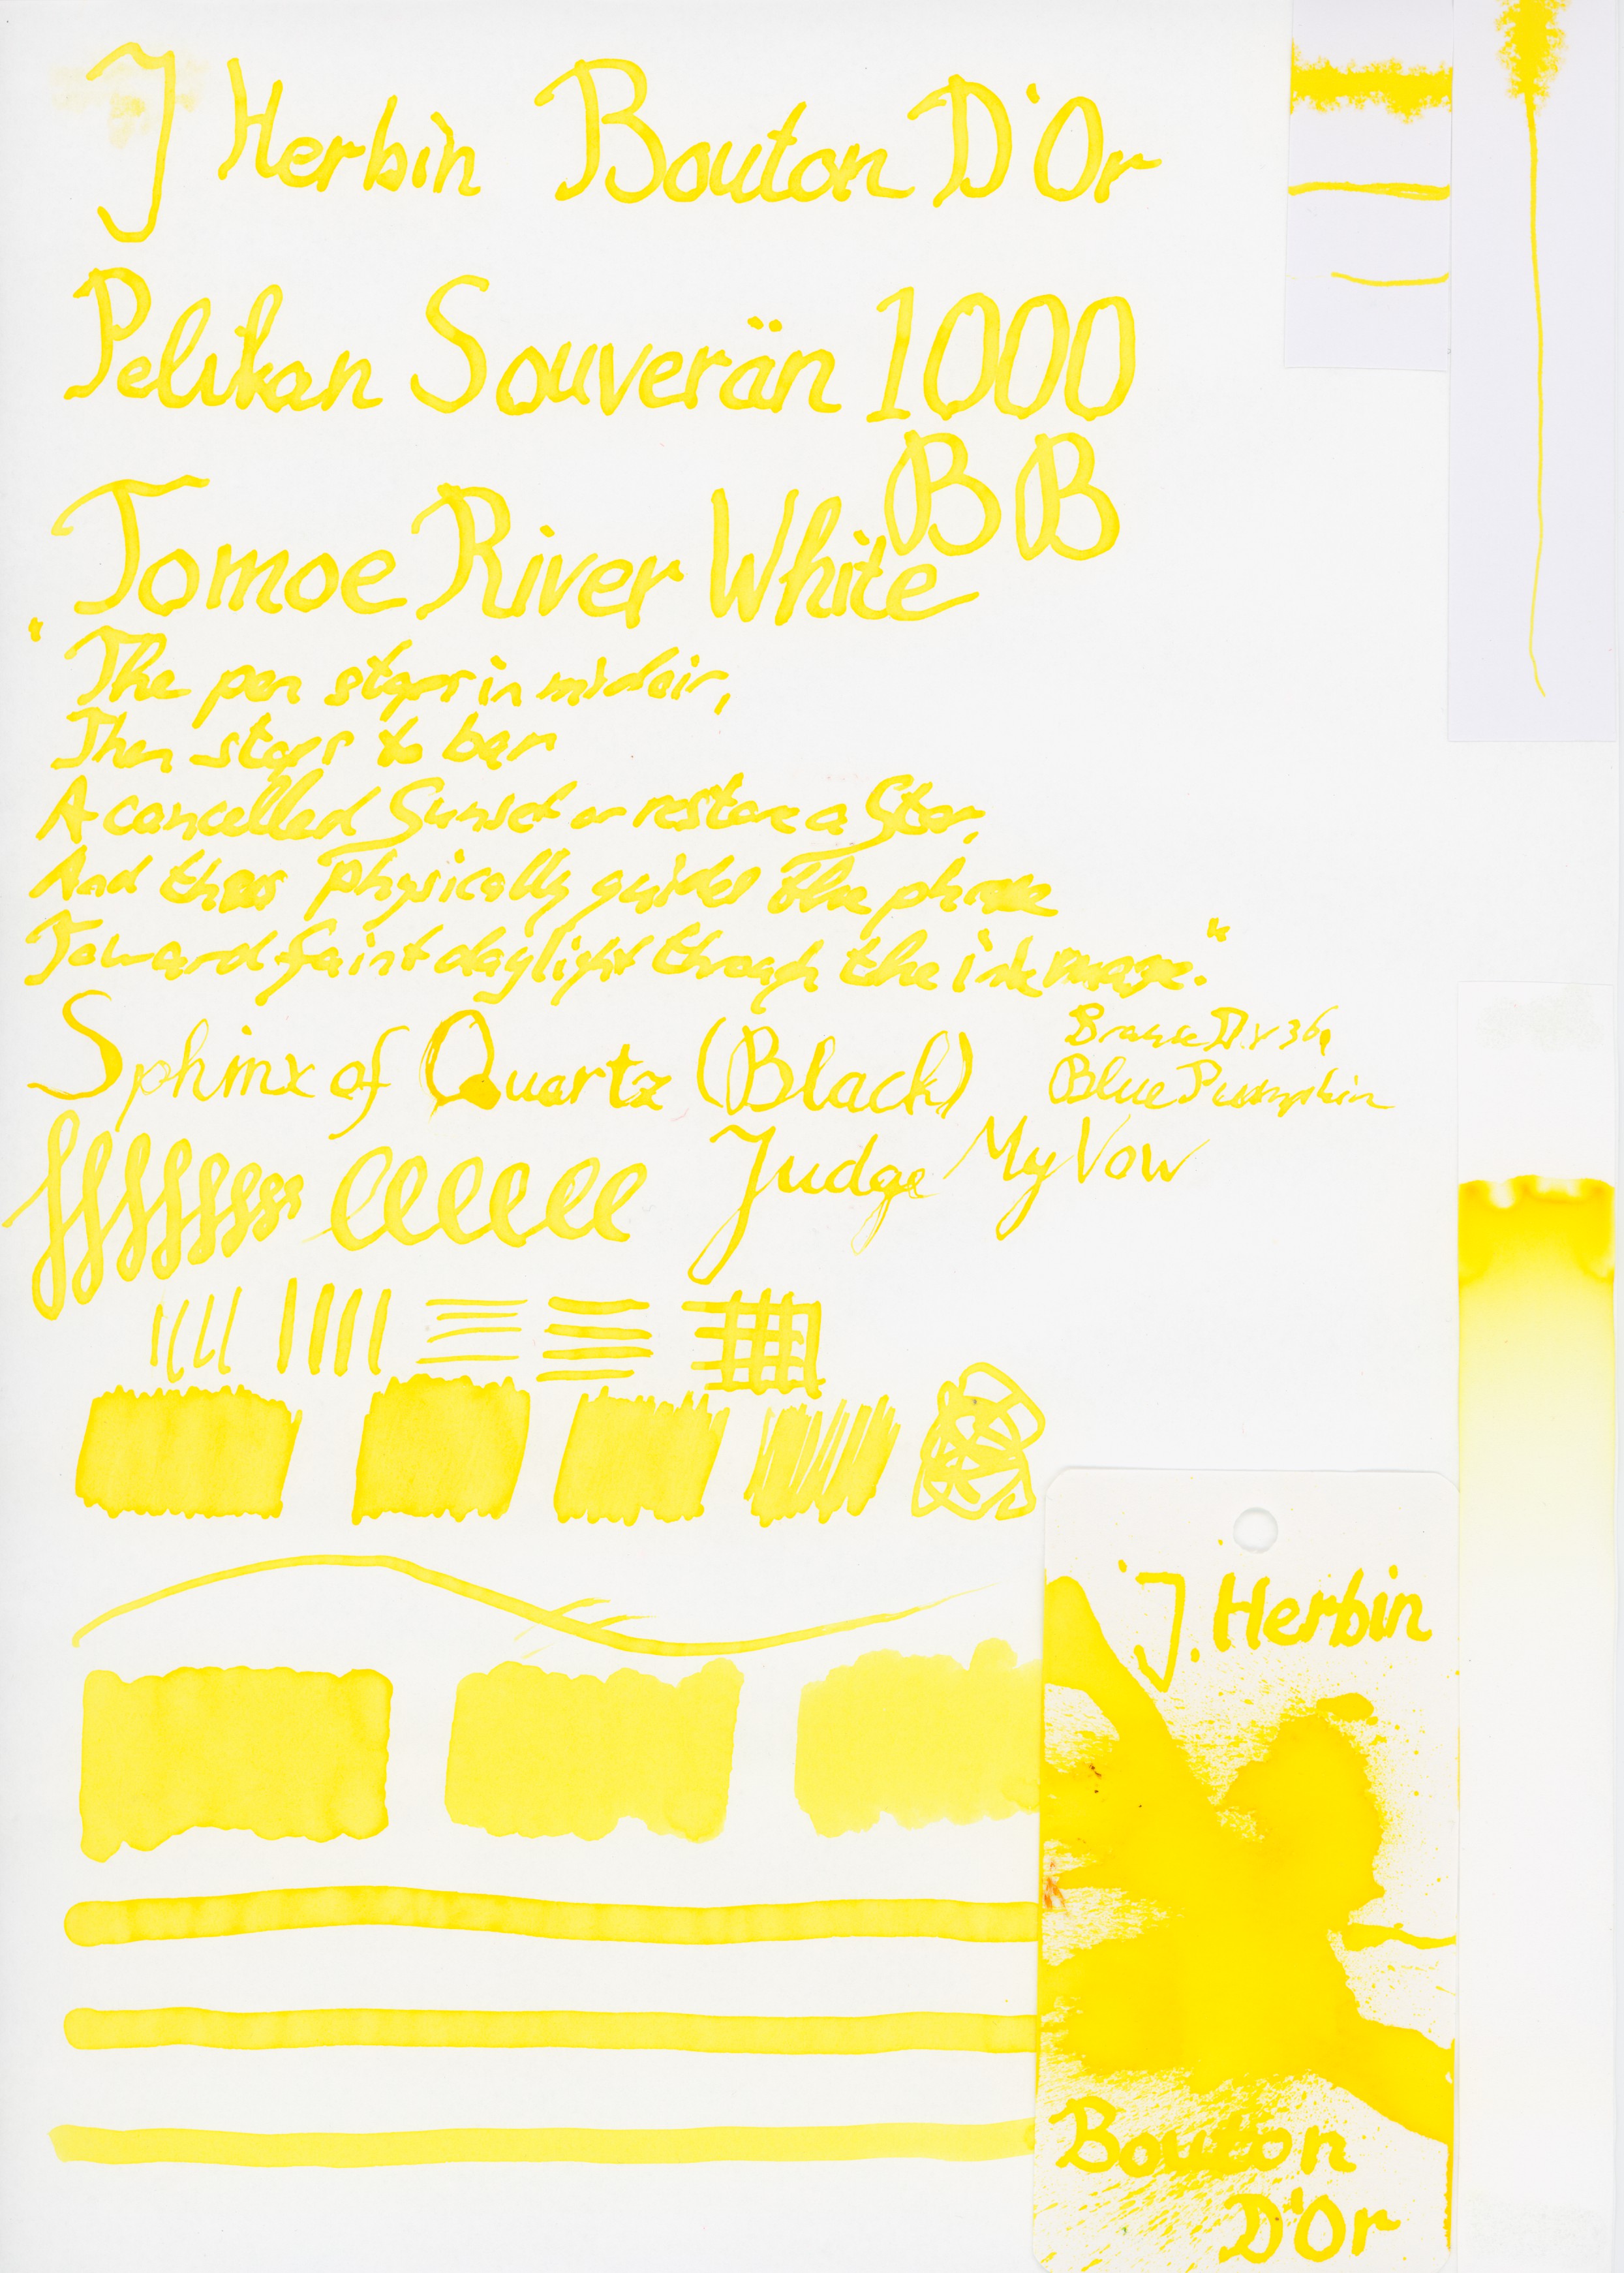 J Herbin Bouton D'Or
Pelikan Souverän 1000
BB
Tomoe River White
"The pen stops in midair,
Then stops to bar
A cancelled Sunset or restore a Star,
And thus physically guides the phrase
Toward faint daylight through the ink maze."
Sphinx of Quartz (Black)
Brause 361
Blue Pumpkin
Judge My Vow
J. Herbin
Bouton
D'Or